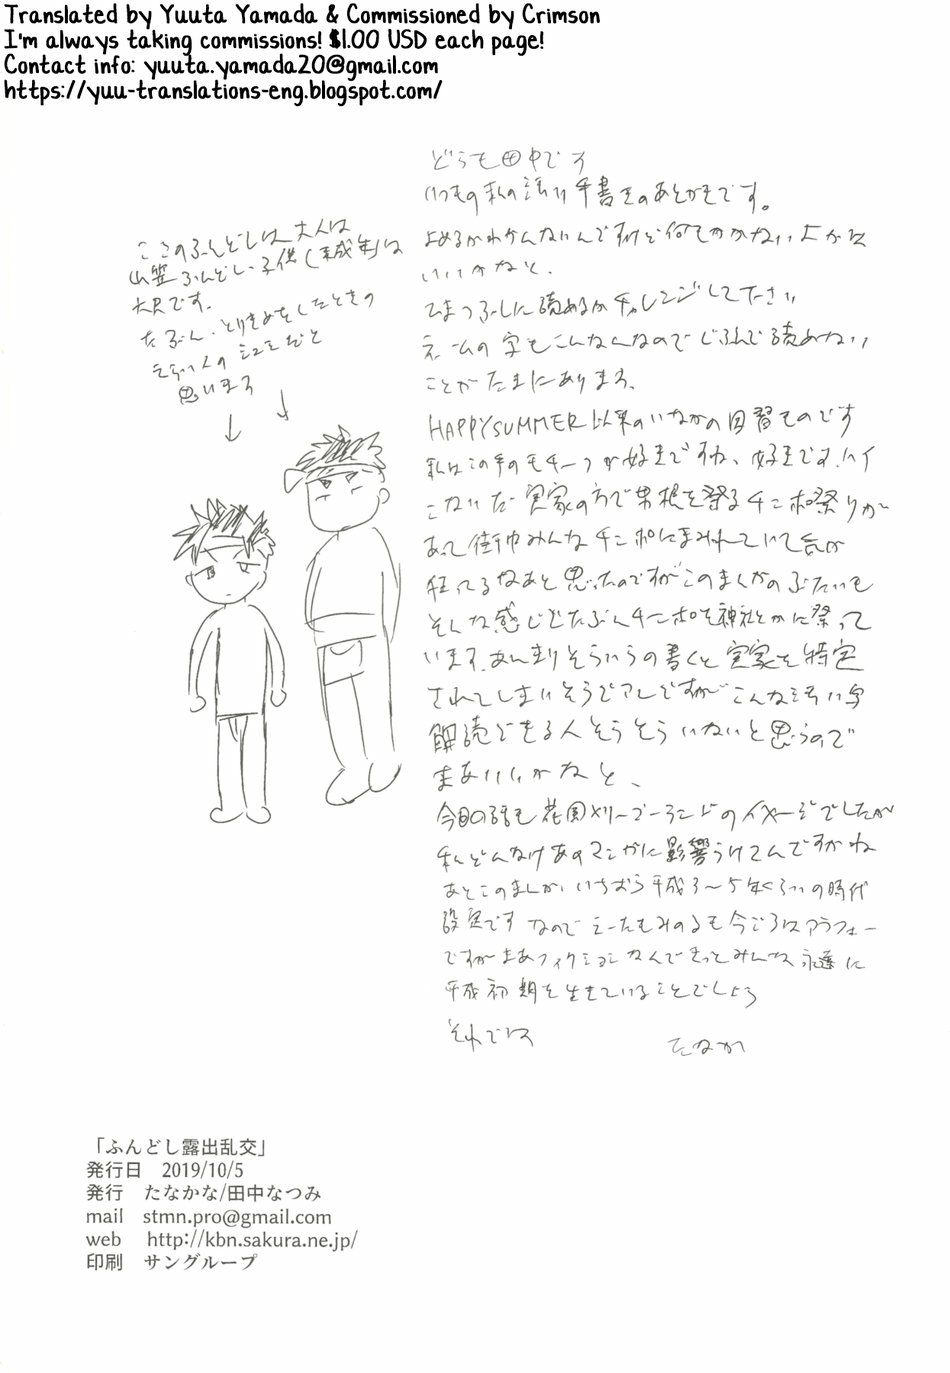 Translated by Yuuta Yamada & Commissioned by Crimson
I'm always taking commissions! $1.00 USD each page!
Contact info: yuuta.yamada20@gmail.com
https://yuu-translations-eng.blogspot.com/
どうも田中です
いつもの私の汚い手書きのあとがきです。
よめるかわかんないんですけど何てかかない よか
いいかなと、
ひまつぶしに読めるかチャレンジして下さい
ネームの字もこんなんなのでじぶんで読めない
ことがたまにあります、
HAPPYSUMMER以来のいなかの因習ものです
私はこの手のモチーフが好きですね、好きです、ハイ
こないだ実家の方で男根を祭るチンポ祭りが
あって街中みんなチンポにまみれていて気が
狂ってるなあと思ったのですがこのまんがのぶたいも
そんな感じでたぶんチンポを神社とかに祭って
います、あんまりそういうの書くと実家を特定
されてしまいそうでアレですがこんな汚い字
解読できる人そうそういないと思うので
まあいいかなと、
今回の話も花園メリーゴーランドのイメージでしたが
私どんだけあのマンガに影響うけてんですかね
あとこのまんが、いちおう平成3〜5年くらいの時代
設定です なので もみのるも今ごろはアラフォー
ですがまあフィクションなんできっとみんな永遠に
平成初期を生きていることでしょう
それでは
たなか
ここのふんどしは大人は
山笠ふんどし、子供(未成年)は
です。
たぶん、とりきめをしたときの
えらい人の だと
思います
「ふんどし露出乱交」
発行日 2019/10/5
発行 たなかな/田中なつみ
mail stmn.pro@gmail.com
web http://kbn.sakura.ne.jp/
印刷 サングループ